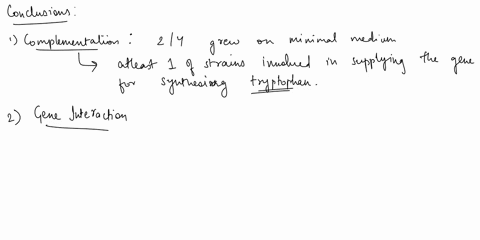 Conclusions:
1) Complementation : 2/4 grew on minimal medium
↳ atleast 1 of strains involved in supplying the gene
for synthesizing tryptophan.
2) Gene Interaction